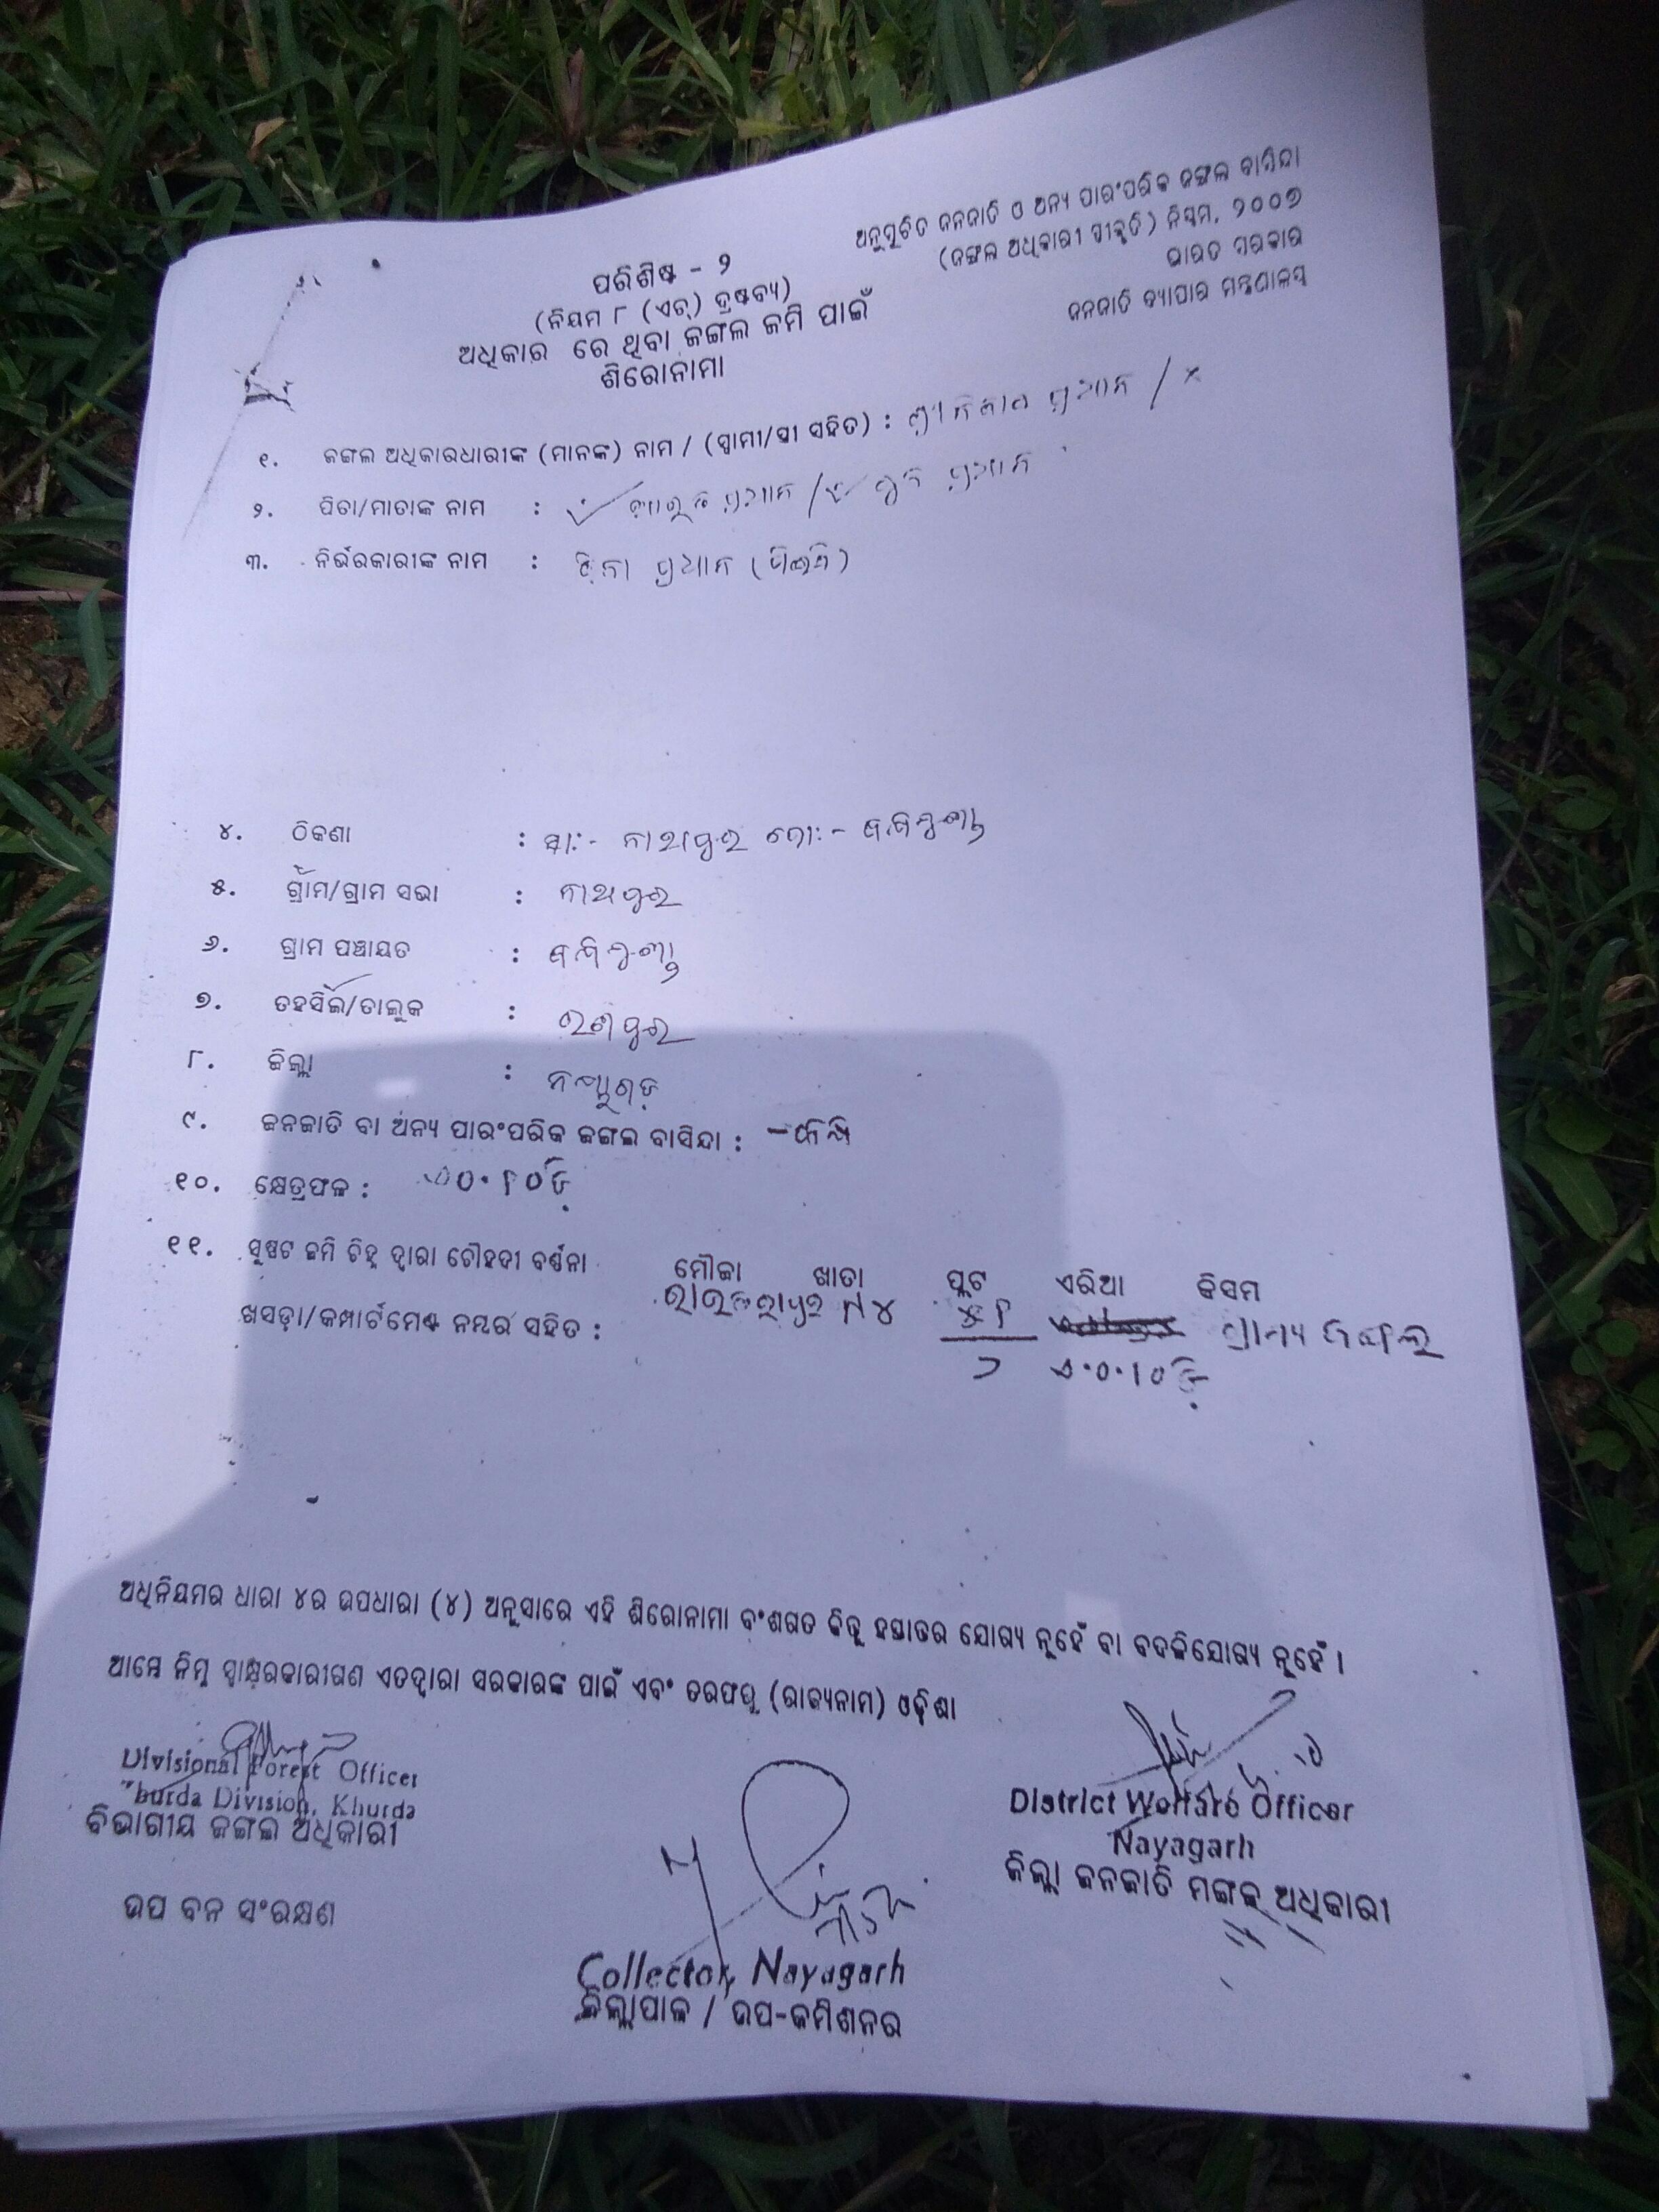 ଅନୁସୂଚିତ ଜନଜାତି ଓ ଅନ୍ୟ ପାରଂପରିକ ଜଙ୍ଗଲ ବାସିନ୍ଦା
(ଜଙ୍ଗଲ ଅଧିକାରୀ ସ୍ୱୀକୃତି) ନିୟମ, ୨୦୦୭
ଭାରତ ସରକାର
ଜନଜାତି ବ୍ୟାପାର ମନ୍ତ୍ରଣାଳୟ
ପରିଶିଷ୍ଟ - ୨
(ନିୟମ ୮ (ଏଚ୍) ଦ୍ରଷ୍ଟବ୍ୟ)
ଅଧିକାର ରେ ଥିବା ଜଙ୍ଗଲ ଜମି ପାଇଁ
ଶିରୋନାମା
୧. ଜଙ୍ଗଲ ଅଧିକାରଧାରୀଙ୍କ (ମାନଙ୍କ) ନାମ / (ସ୍ୱାମୀ/ସ୍ତ୍ରୀ ସହିତ) : ପ୍ରଧାନ / ×
୨. ପିତା/ମାତାଙ୍କ ନାମ : ପ୍ରଧାନ / ପ୍ରଧାନ
୩. ନିର୍ଭରକାରୀଙ୍କ ନାମ : ପ୍ରଧାନ
୪. ଠିକଣା : ସା:- ନାଥପୁର ପୋ:-
୫. ଗ୍ରାମ/ଗ୍ରାମ ସଭା : ନାଥପୁର
୬. ଗ୍ରାମ ପଞ୍ଚାୟତ :
୭. ତହସିଲ/ତାଲୁକ : ରଣପୁର
୮. ଜିଲ୍ଲା : ନୟାଗଡ଼
୯. ଜନଜାତି ବା ଅନ୍ୟ ପାରଂପରିକ ଜଙ୍ଗଲ ବାସିନ୍ଦା : - କନ୍ଧ
୧୦. କ୍ଷେତ୍ରଫଳ :
୧୧. ସ୍ପଷ୍ଟ ଜମି ଚିହ୍ନ ଦ୍ୱାରା ଚୌହଦୀ ବର୍ଣ୍ଣନା
ମୌଜା ଖାତା ପ୍ଲଟ ଏରିଆ କିସମ
ଖସଡ଼ା/କମ୍ପାର୍ଟମେଣ୍ଟ ନମ୍ବର ସହିତ : ଗ୍ରାମ୍ୟ ଜଙ୍ଗଲ
ଅଧିନିୟମର ଧାରା ୪ର ଉପଧାରା (୪) ଅନୁସାରେ ଏହି ଶିରୋନାମା ବଂଶଗତ କିନ୍ତୁ ହସ୍ତାନ୍ତର ଯୋଗ୍ୟ ନୁହେଁ ବା ବଦଳିଯୋଗ୍ୟ ନୁହେଁ ।
ଆମ୍ଭେ ନିମ୍ନ ସ୍ୱାକ୍ଷରକାରୀଗଣ ଏତଦ୍ୱାରା ସରକାରଙ୍କ ପାଇଁ ଏବଂ ତରଫରୁ (ରାଜ୍ୟନାମ) ଓଡ଼ିଶା
Divisional Forest Officer
Khurda Division, Khurda
ବିଭାଗୀୟ ଜଙ୍ଗଲ ଅଧିକାରୀ
ଉପ ବନ ସଂରକ୍ଷଣ
Collector, Nayagarh
ଜିଲ୍ଲାପାଳ / ଉପ-କମିଶନର
District Welfare Officer
Nayagarh
ଜିଲ୍ଲା ଜନଜାତି ମଙ୍ଗଳ ଅଧିକାରୀ